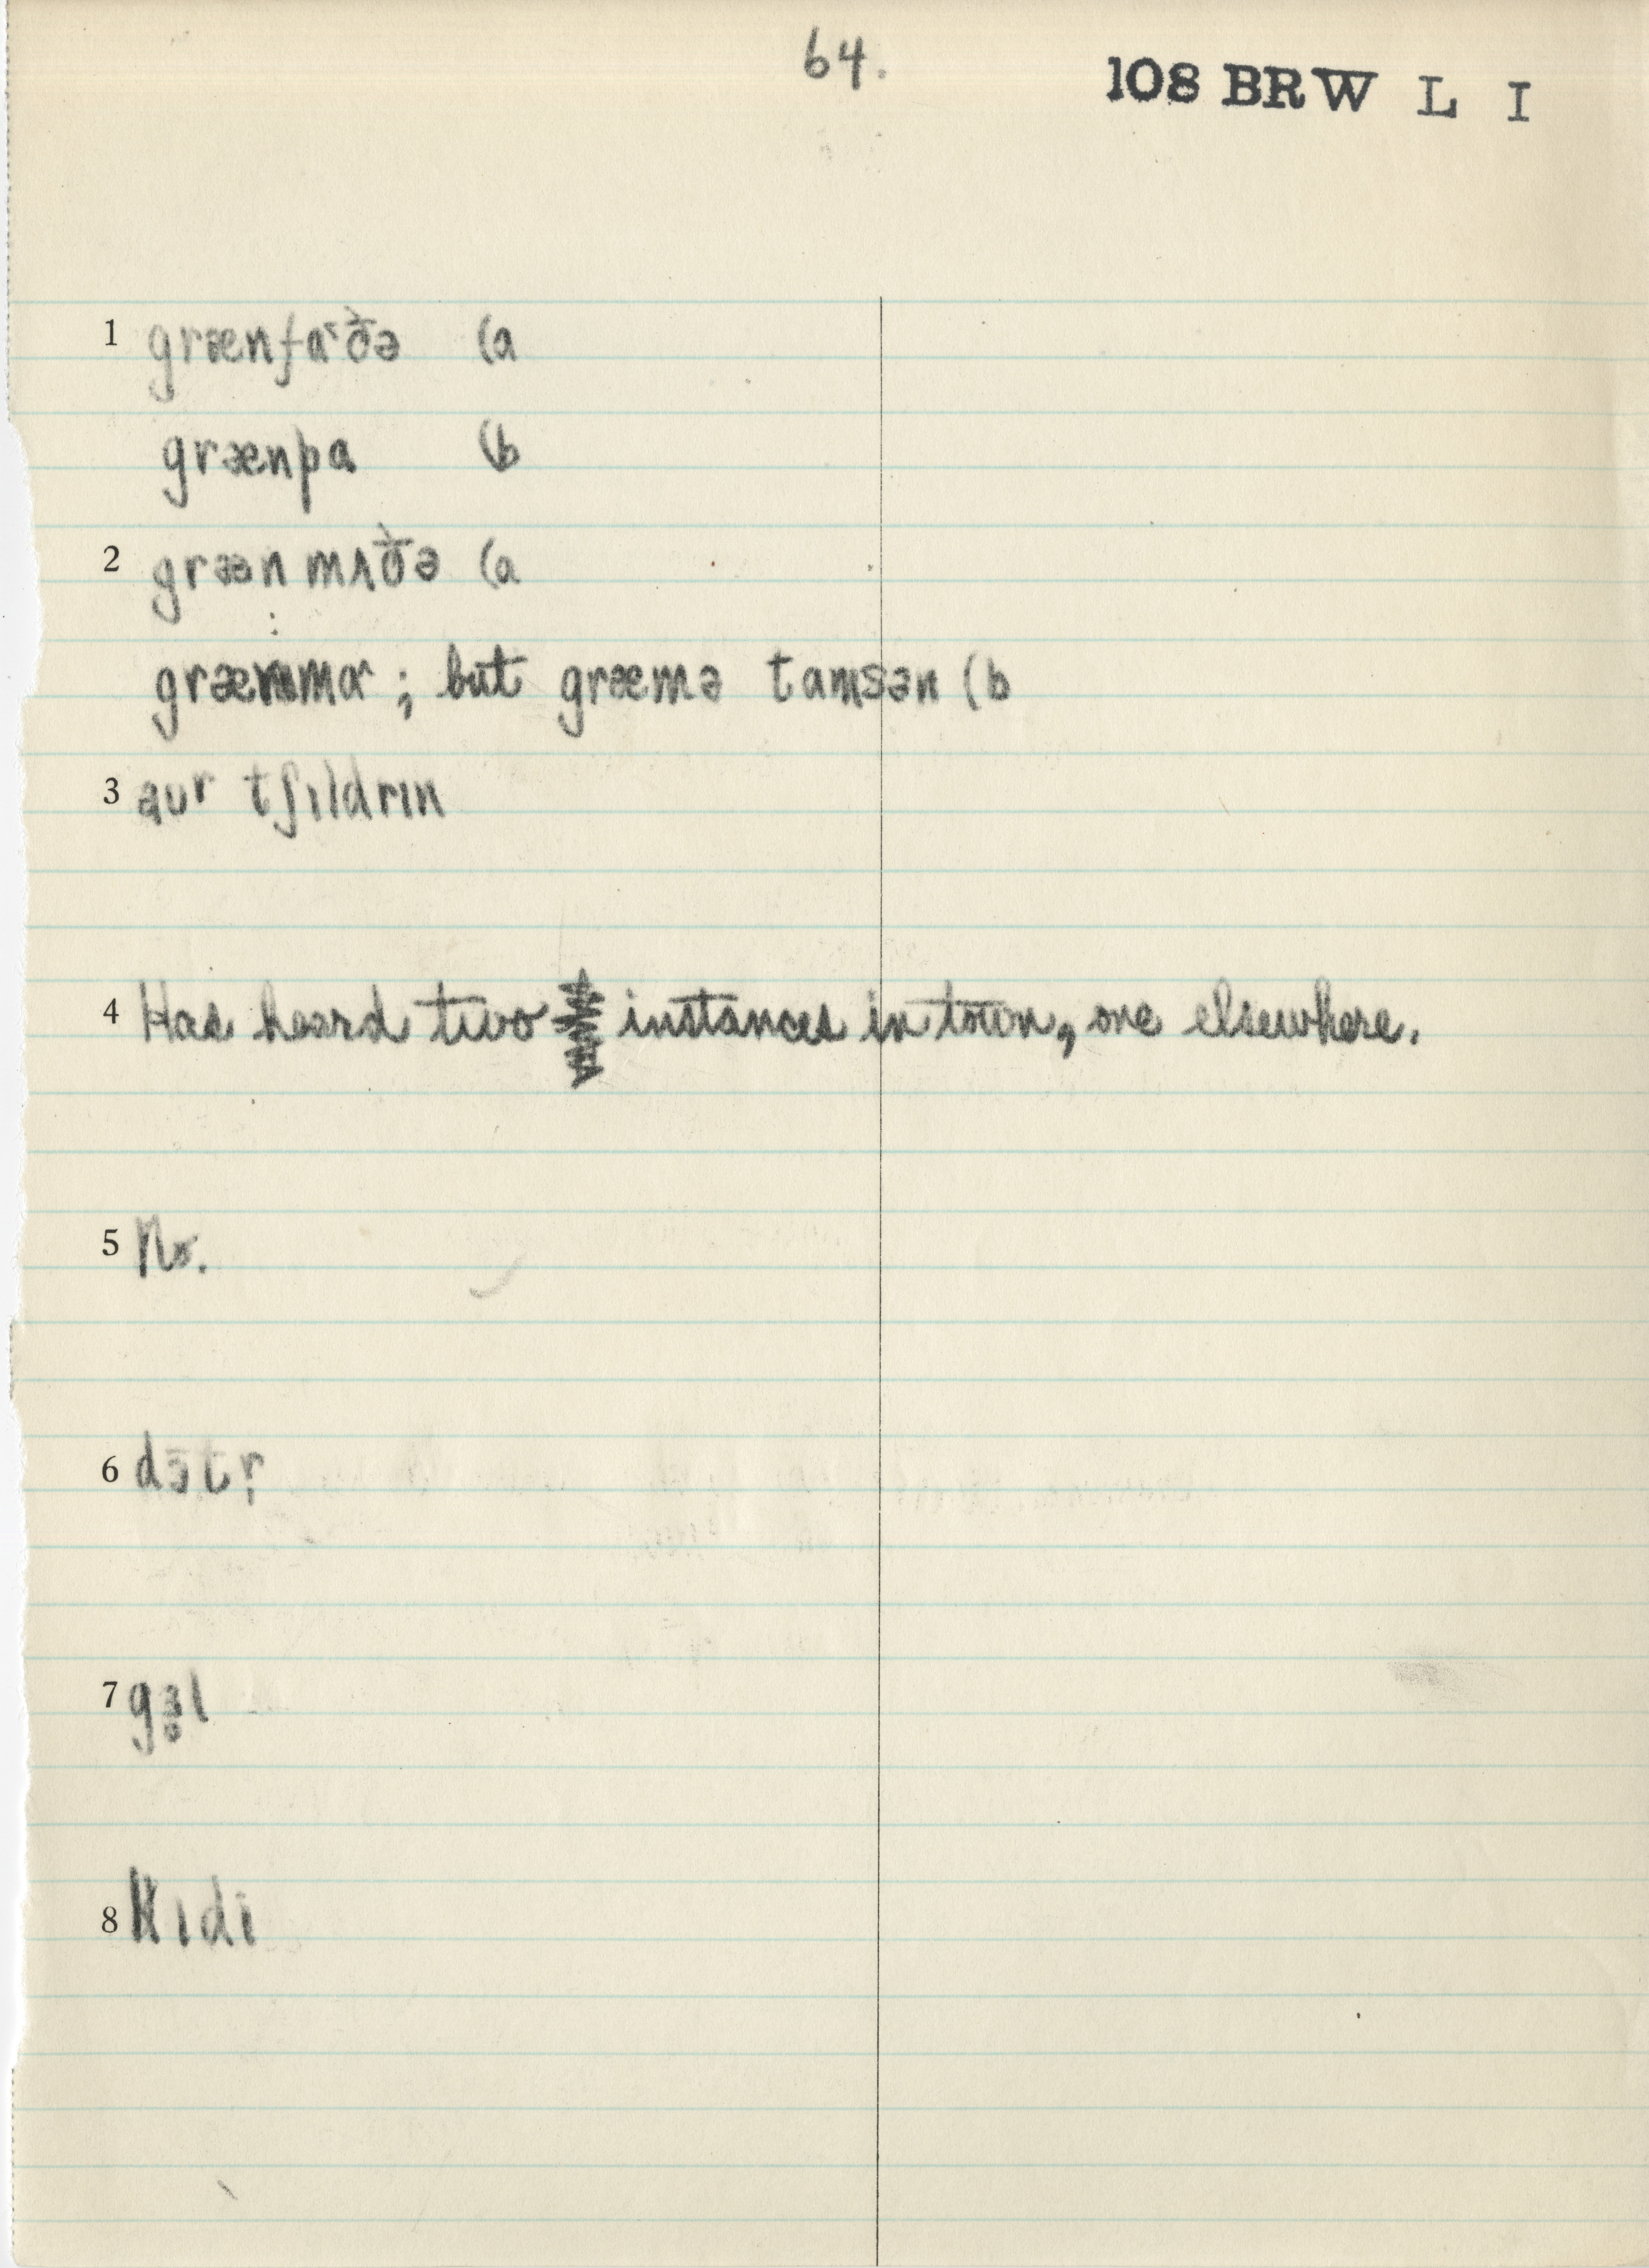 64.
108 BRW L I
1 grænfaˑðə (a
grænpa (b
2 græən mʌðə (a
græmma ; but græmə tamsən (b
3 aur tʃıldrın
4 Has heard two instances in town, one elsewhere.
5 No.
6 dɔtr̩
7 gɜl
8 kıdi